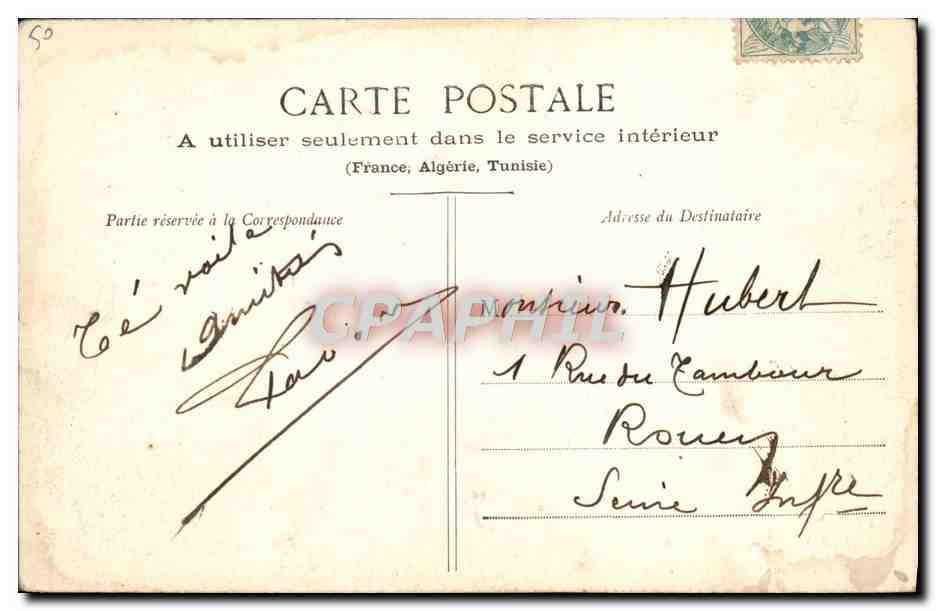 50
CARTE POSTALE
A utiliser seulement dans le service intérieur
(France, Algérie, Tunisie)
Partie réservée à la Correspondance
Adresse du Destinataire
Té voila
amitiés
Monsieur Hubert
1 Rue du Tambour
Rouen
Seine Infre
CPAPHIL